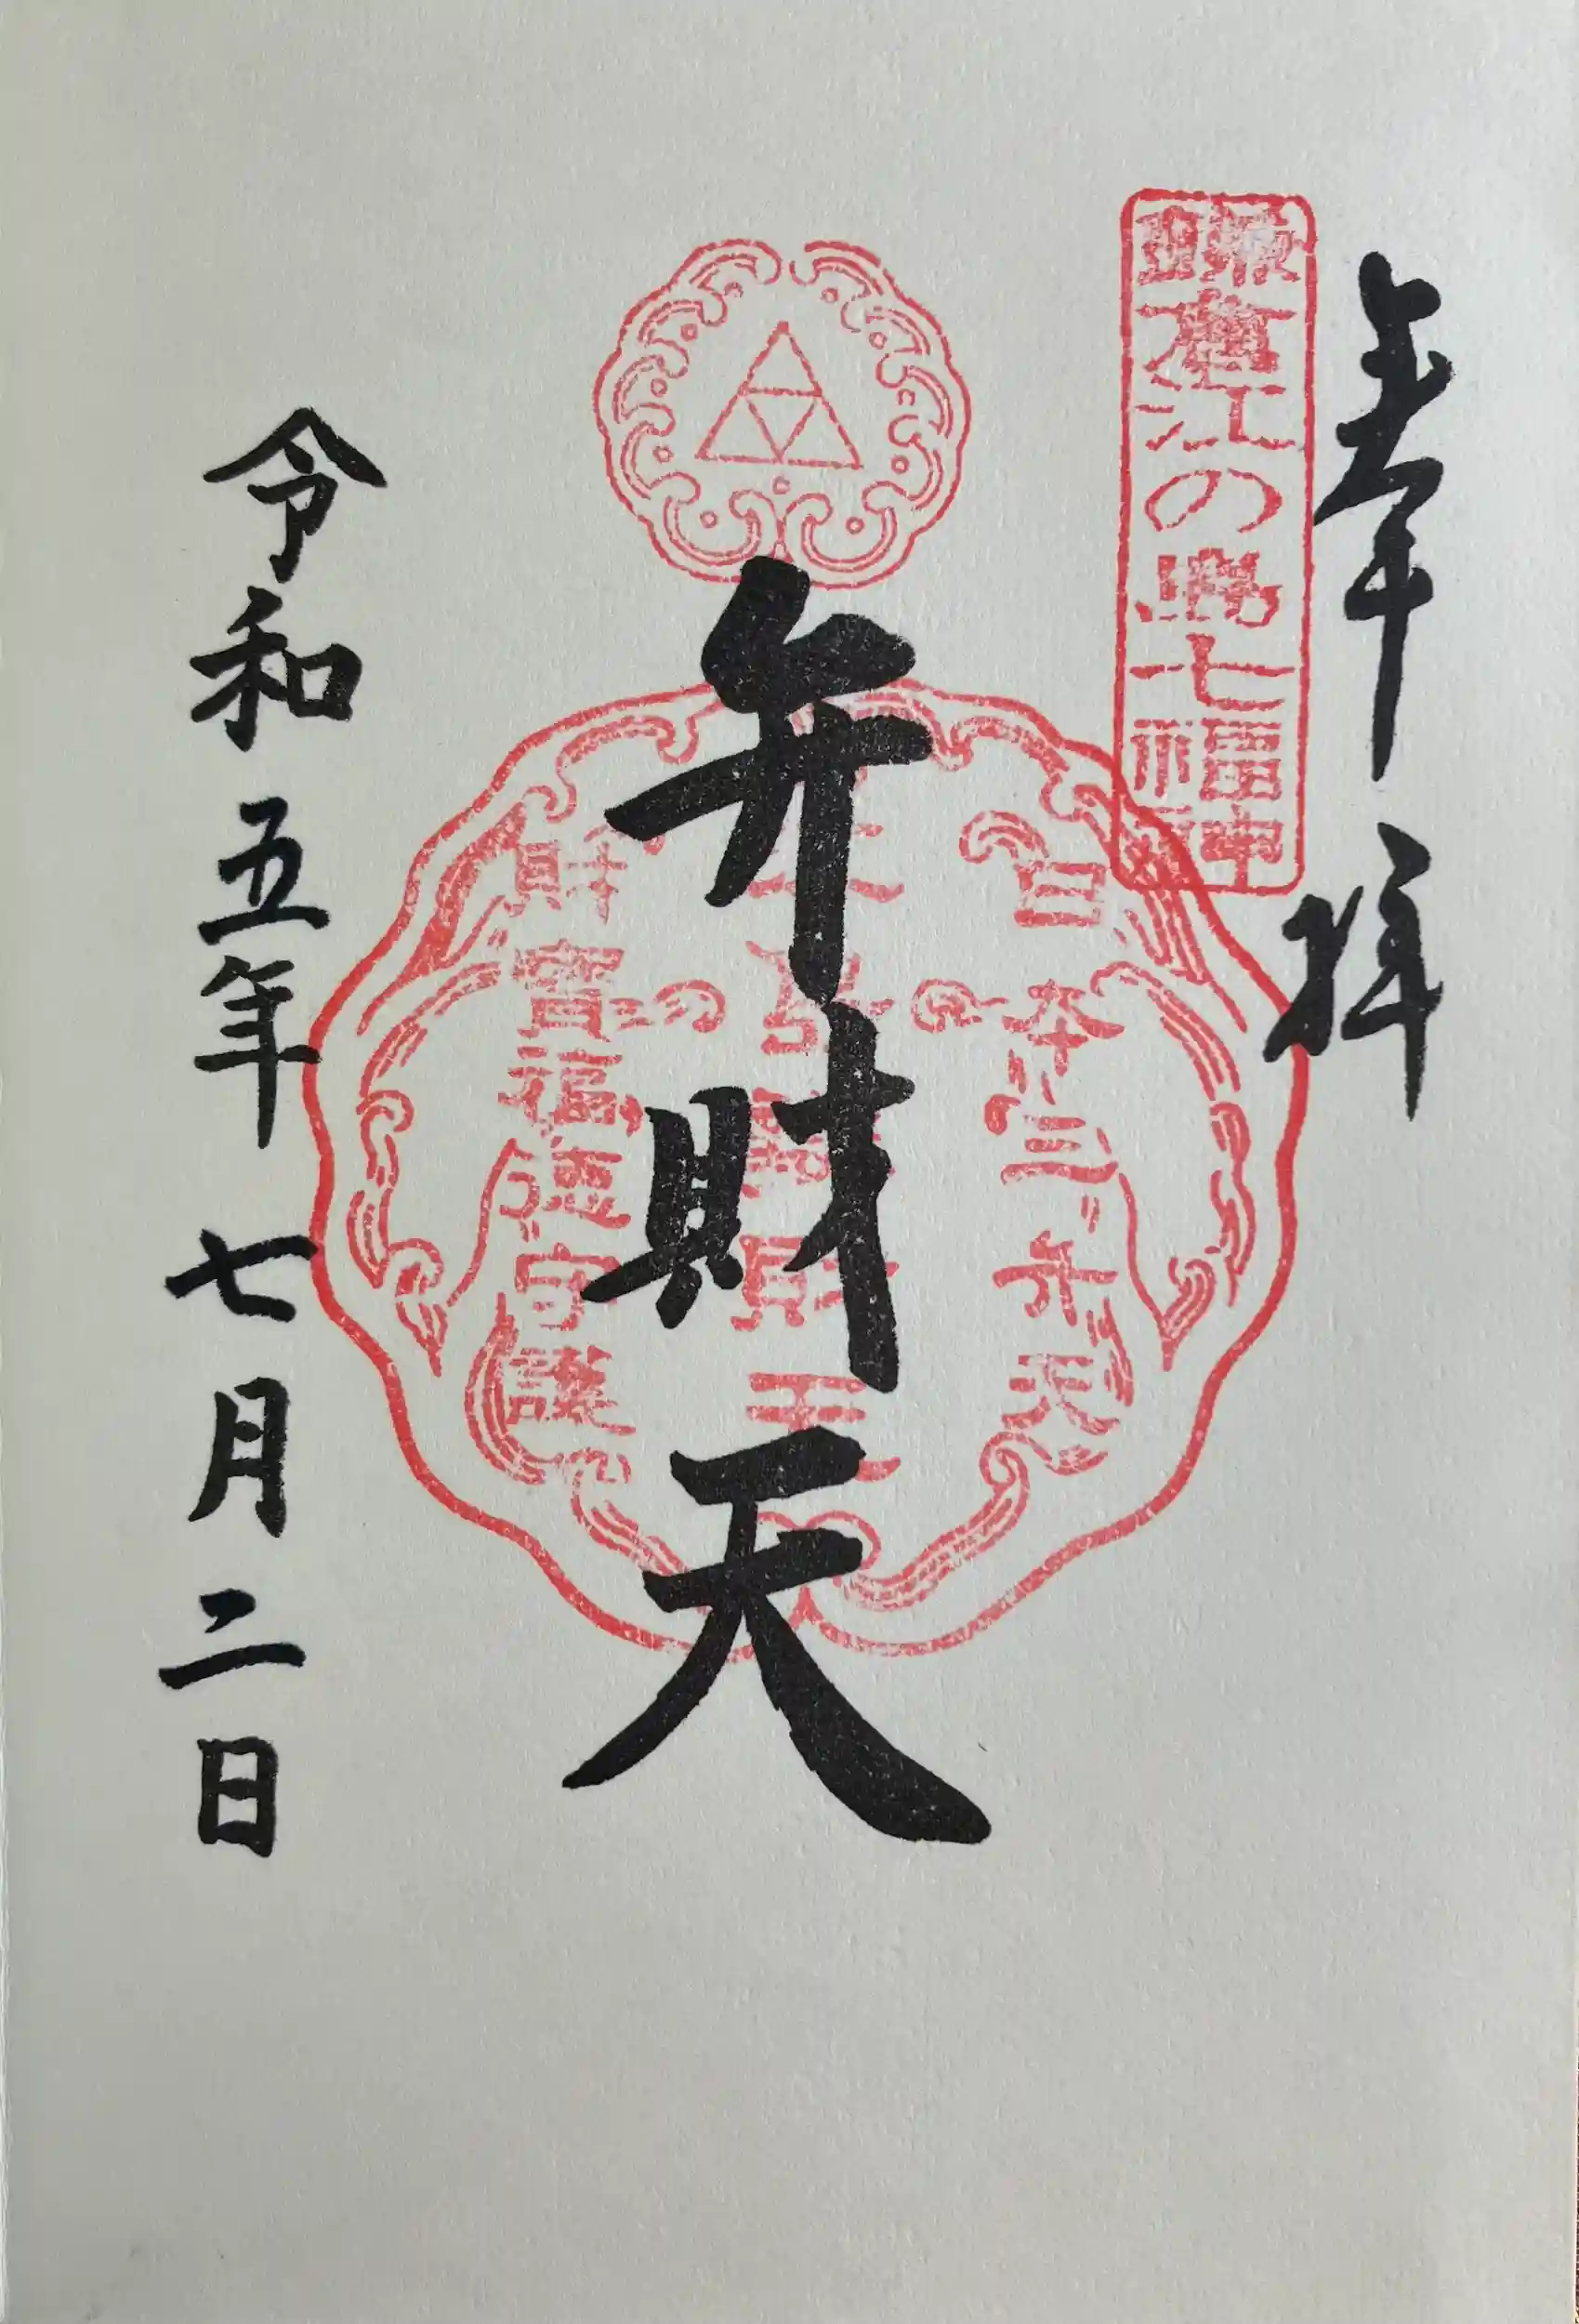 奉拝
鎌倉江の島七福神
日本三弁天
弁財天
財寶福徳守護
令和五年 七月二日